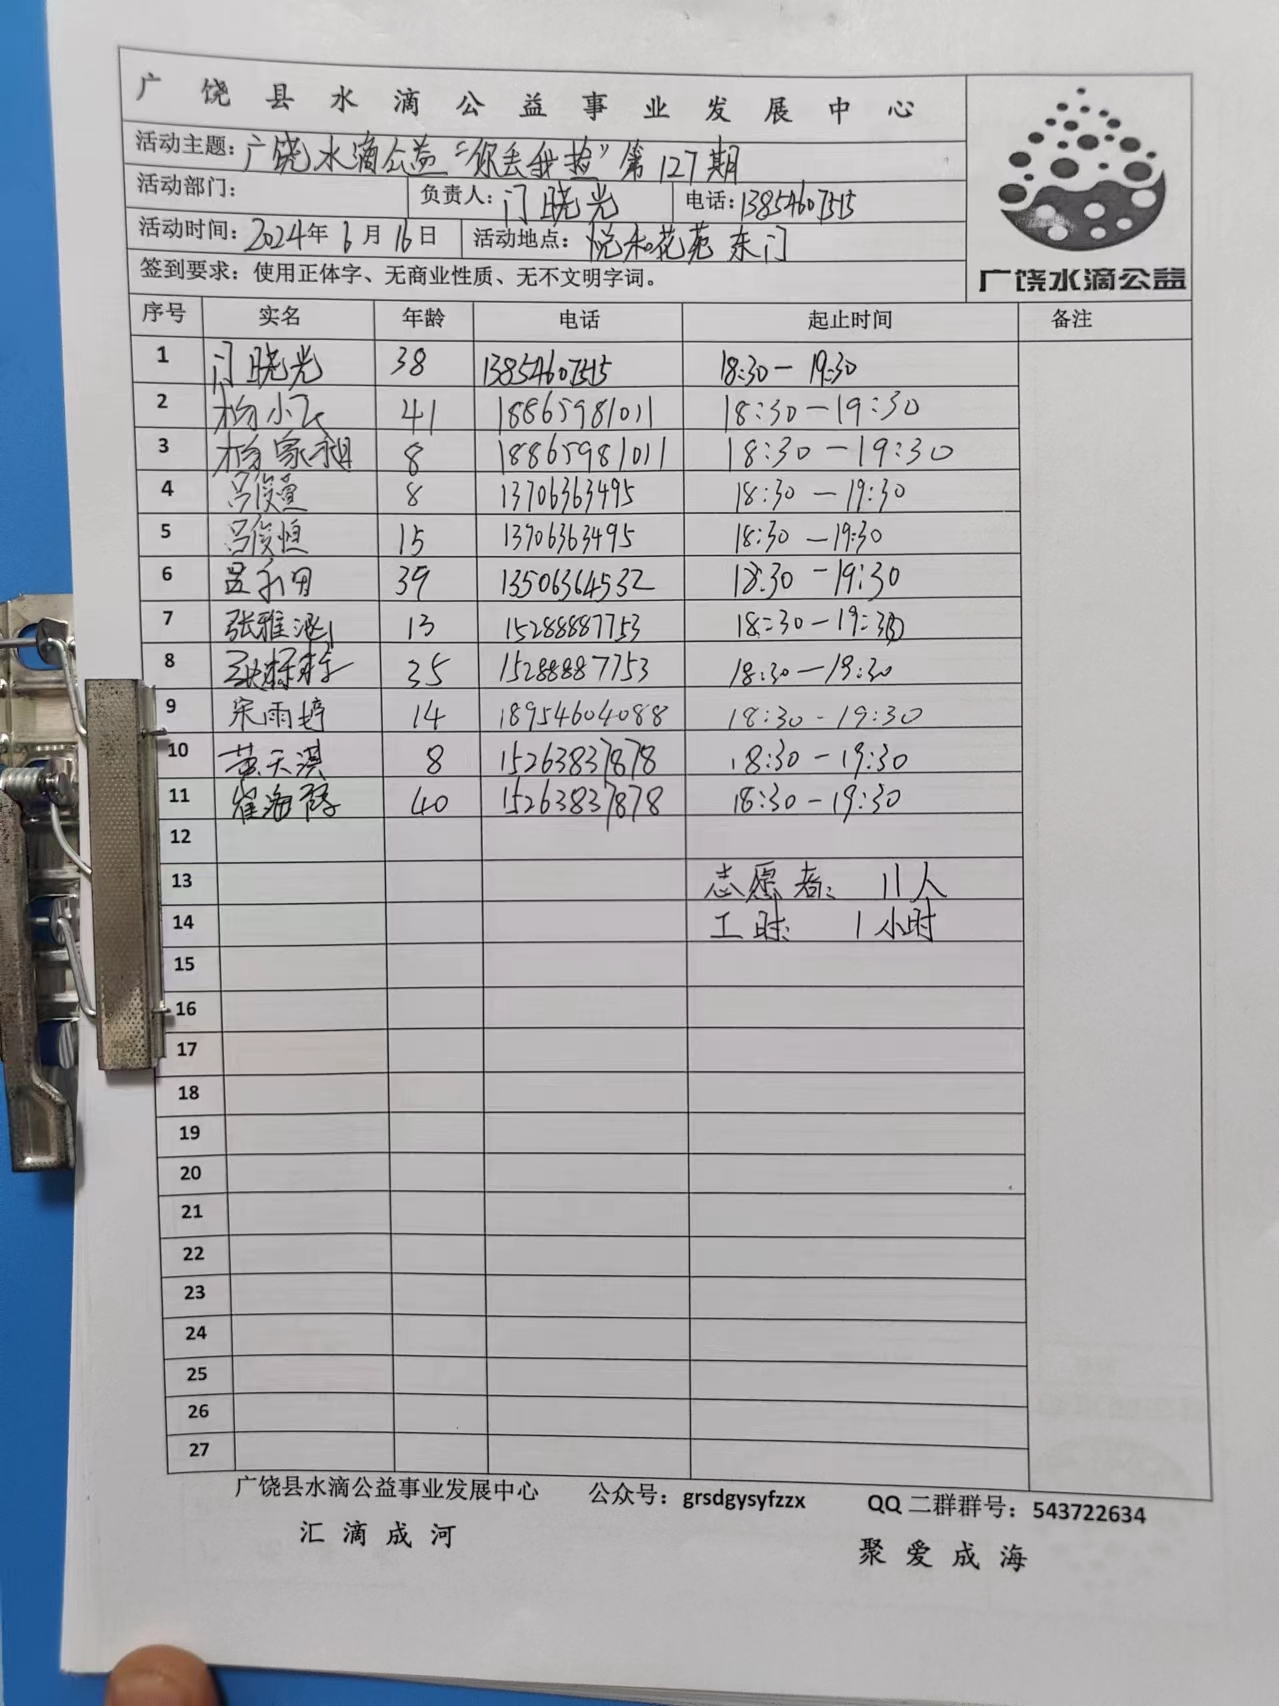 广饶县水滴公益事业发展中心
活动主题：广饶水滴公益“你丢我捡”第127期
活动部门： 负责人：门晓光 电话：13854607515
活动时间：2024年6月16日 活动地点：悦和花苑东门
签到要求：使用正体字、无商业性质、无不文明字词。
广饶水滴公益
序号 实名 年龄 电话 起止时间 备注
1 门晓光 38 13854607515 18:30－19:30
2 杨小飞 41 18865981011 18:30－19:30
3 杨家 8 18865981011 18:30－19:30
4 吕俊萱 8 13706363495 18:30－19:30
5 吕俊恒 15 13706363495 18:30－19:30
6 39 13506364532 18:30－19:30
7 张雅涵 13 15288887753 18:30－19:30
8 35 15288887753 18:30－19:30
9 宋雨婷 14 18954604088 18:30-19:30
10 黄天淇 8 15263837878 18:30－19:30
11 崔海 40 15263837878 18:30－19:30
12
13 志愿者： 11人
14 工时： 1小时
15
16
17
18
19
20
21
22
23
24
25
26
27
广饶县水滴公益事业发展中心 公众号：grsdgysyfzzx QQ二群群号：543722634
汇滴成河 聚爱成海